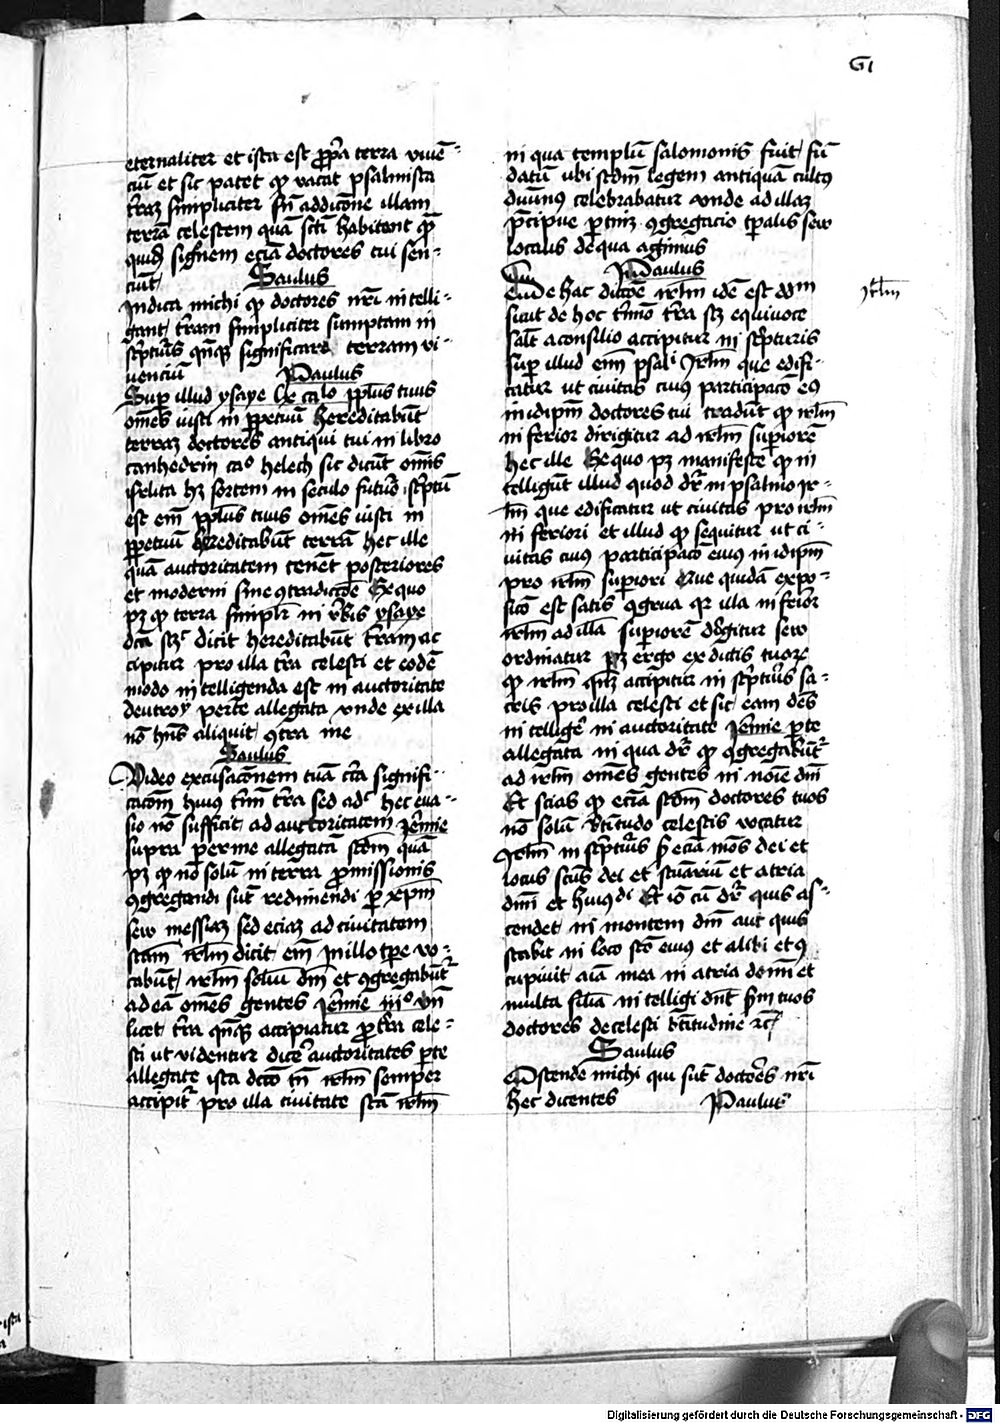 61
eternaliter et ista est ꝓpͥa terra viuē-
ciū et sic patet ꝙ vacat psalmista
t̄raꝫ simpliciter sn̄ addicōne illam
terrā celestem quā scti habitant ꝓ̄
signem eciā doctores tui sen-
ciūt
Saulus
Indica michi ꝙ doctores nr̄i intelli-
gant t̄ram simpliciter sumptam in
sc̄pturis qn̄qꝫ significare terram vi-
uenciū
Paulus
Sup̄ illud ysaye lx ca lo ppl̄us tuus
om̄es iusti in ꝑpetuū hereditabūt
terraꝫ doctores antiqui tui in libro
canhedrin ca⁰ helech sic dicūt om̄is
isrelita hꝫ sortem in seculo futuro sc̄ptū
est em̄ ppl̄us tuus om̄es iusti in
ꝑpetuū hereditabūt terrā hec ille
quā auctoritatem tenēt posteriores
et moderni sine ꝯtradicōe Ex quo
pꝫ ꝙ terra simplr̄ in v̄bis ysaye
dcā scꝫ dicit hereditabūt t̄ram ac
cipitur pro illa t̄ra celesti et eodē
modo intelligenda est in auctoritate
deutroy per te allegata vnde ex illa
nō hn̄s aliquit ꝯtra me
Saulus
Video excusacōnem tuā c̄ca signifi-
cacōm huius t̄mī t̄ra sed adͨ hec eua-
sio nō sufficit ad auctoritatem Jer̄mie
supra per me allegatā scdm̄ quā
pꝫ ꝙ nō solū in terra ꝓmissionis
ꝯgregandi sūt redimendi ꝑ xpm̄
seu messiaꝫ sed eciaꝫ ad ciuitatem
scam̄ irl̄m dicit em̄ In illo tp̄e vo-
cabūt irl̄m soliū dm̄ et ꝯgregabūtͬ
ad eā om̄es gentes Jer̄mie iij⁰ vn̄
licet t̄ra qn̄qꝫ accipiatur ꝓ t̄ra cele-
sti ut videntur dice̓ auctoritates ꝑ te
allegate ista dcc̄o tn̄ irl̄m semper
accipitͬ pro illa ciuitate scā irl̄m
in qua templū salomonis fuit fū
datū ubi scdm̄ legem antiquā cultꝯ
diuinus celebrabatur vnde ad illaꝫ
p̄cipue ꝑtinꝫ ꝯgregacio tp̄alis seu
localis de qua agimus
Paulus
irl̄m
Eciā de hac dicōe irl̄m idē est ddm̄
sicut de hoc t̄mīo t̄ra scꝫ equiuoce
salt̄ a consilio accipitur in sc̄pturis
sup̄ illud em̄ psal⁠ⁱ Irl̄m que edifi-
catur ut ciuitas cuius participacō eꝯ
in idip̄m doctores tui tradūt ꝙ irl̄m
inferior dirigitur ad irl̄m supiorē
hec ille Ex quo pꝫ manifeste ꝙ in
telligūt illud quod dr̄ in psalmo Jr-
l̄m que edificatur ut ciuitas pro irl̄m
in feriori et illud ꝙ sequitur ut ci-
uitas cuius participacō eius in idip̄m
pro irl̄m supiori Que quidā expo-
sicō est satis ꝯgrua qͥ illa inferior
irl̄m ad illā supiorē dr̄igitur seu
ordinatur pꝫ ergo ex dictis tuorꝫ
ꝙ irl̄m qn̄qꝫ accipitur in sc̄pturis sa-
cris pro illa celesti et sic eam dēs
intellige̓ in auctoritate Jer̄mie ꝑ te
allegata in qua dr̄ ꝙ ꝯgregabūtͬ
ad irl̄m om̄es gentes in noīe dm̄
Et scias ꝙ eciā scdm̄ doctores tuos
nō solū b̄titudo celestis vocatur
irl̄m in sc̄pturis s̄ eciā mōs dei et
locus scūs dei et sc̄tuāriū et atria
dm̄ et huiꝯ di Et iō cū dr̄ quis as-
cendet in montem dm̄ aut quis
stabit in loco scō eius et alibi et ꝯ
cupiuit aīa mea in atria domī et
multa silīa intelligi dn̄t s̄m tuos
doctores de celesti b̄titudine ⁊c̄
Saulus
Ostende michi qui sūt doctores nr̄i
hec dicentes
Paulus
Digitalisierung gefördert durch die Deutsche Forschungsgemeinschaft - DFG